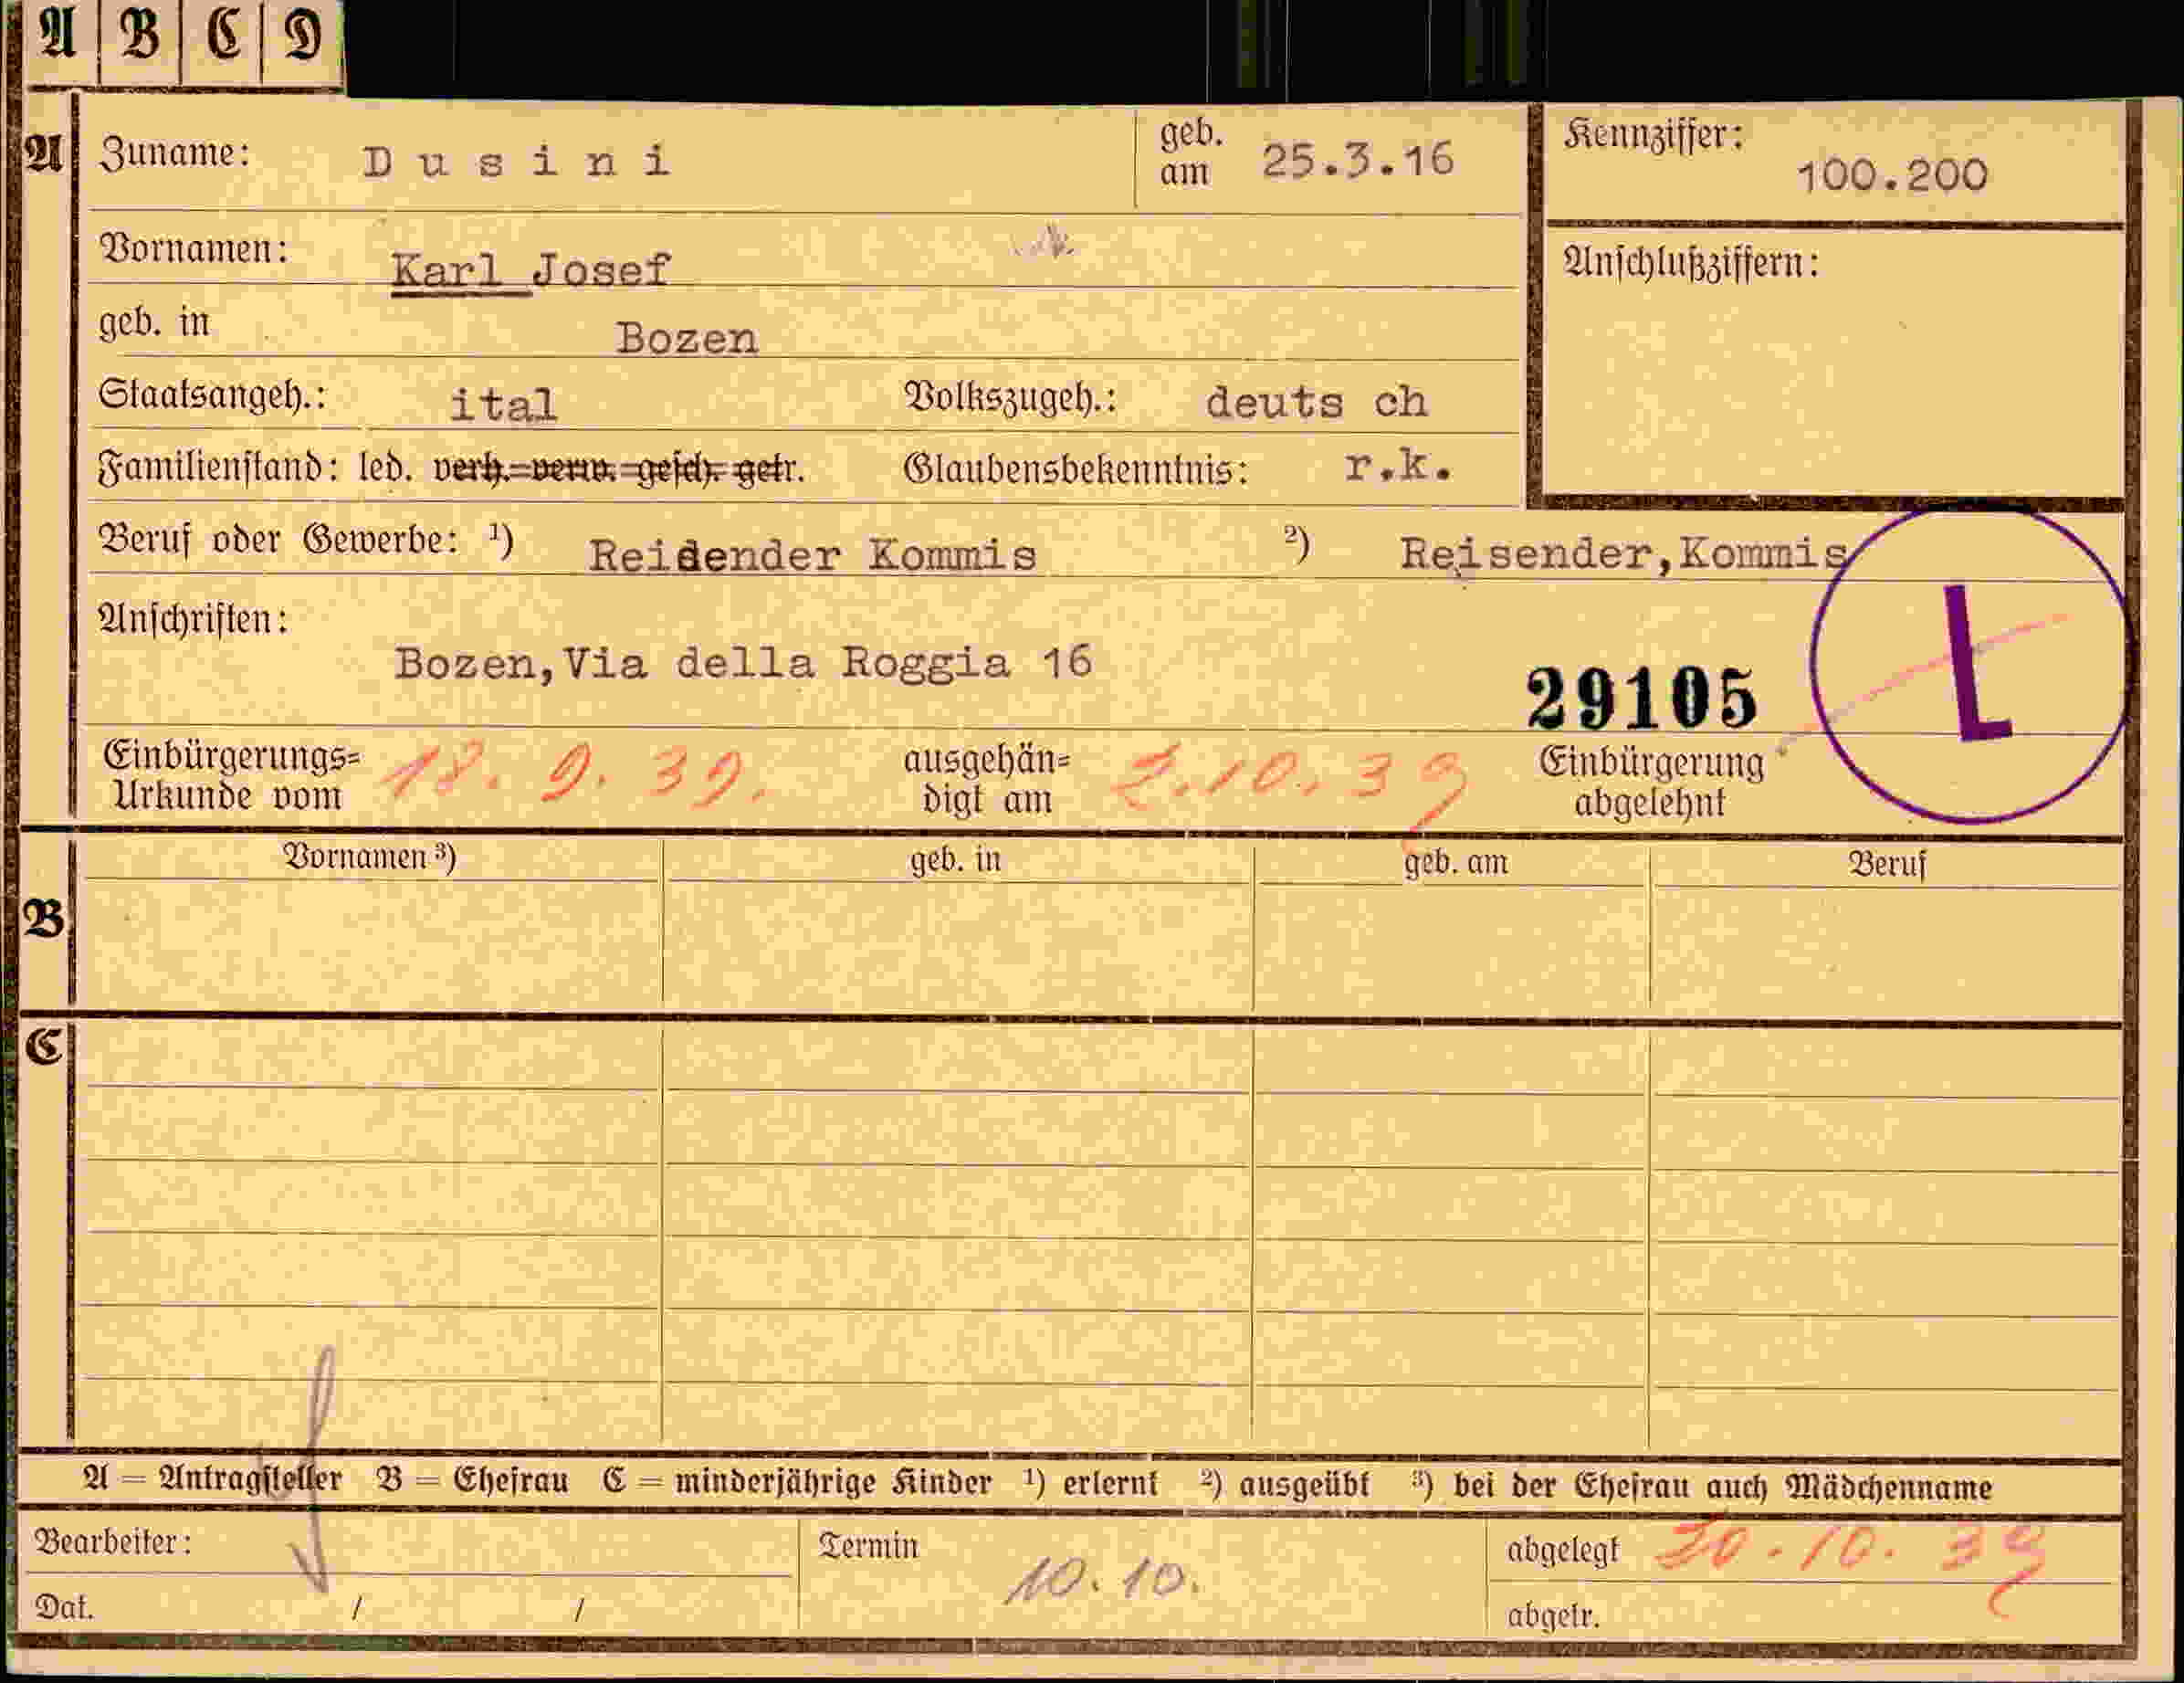 A B C D
A Zuname: Dusini geb. am 25.3.16 Kennziffer: 100.200
Vornamen: Karl Josef Anschlußziffern:
geb. in Bozen
Staatsangeh.: ital Volkszugeh.: deuts ch
Familienstand: led. verh. verw. gesch. getr. Glaubensbekenntnis: r.k.
Beruf oder Gewerbe: 1) Reisender Kommis 2) Reisender,Kommis
Anschriften:
Bozen,Via della Roggia 16
29105 L
Einbürgerungs= Urkunde vom 18. 9. 39. ausgehän= digt am 2.10.39 Einbürgerung abgelehnt
B Vornamen 3) geb. in geb. am Beruf
C
A = Antragsteller B = Ehefrau C = minderjährige Kinder 1) erlernt 2) ausgeübt 3) bei der Ehefrau auch Mädchenname
Bearbeiter: Termin 10.10. abgelegt 30.10.39
Dat. / / abgetr.